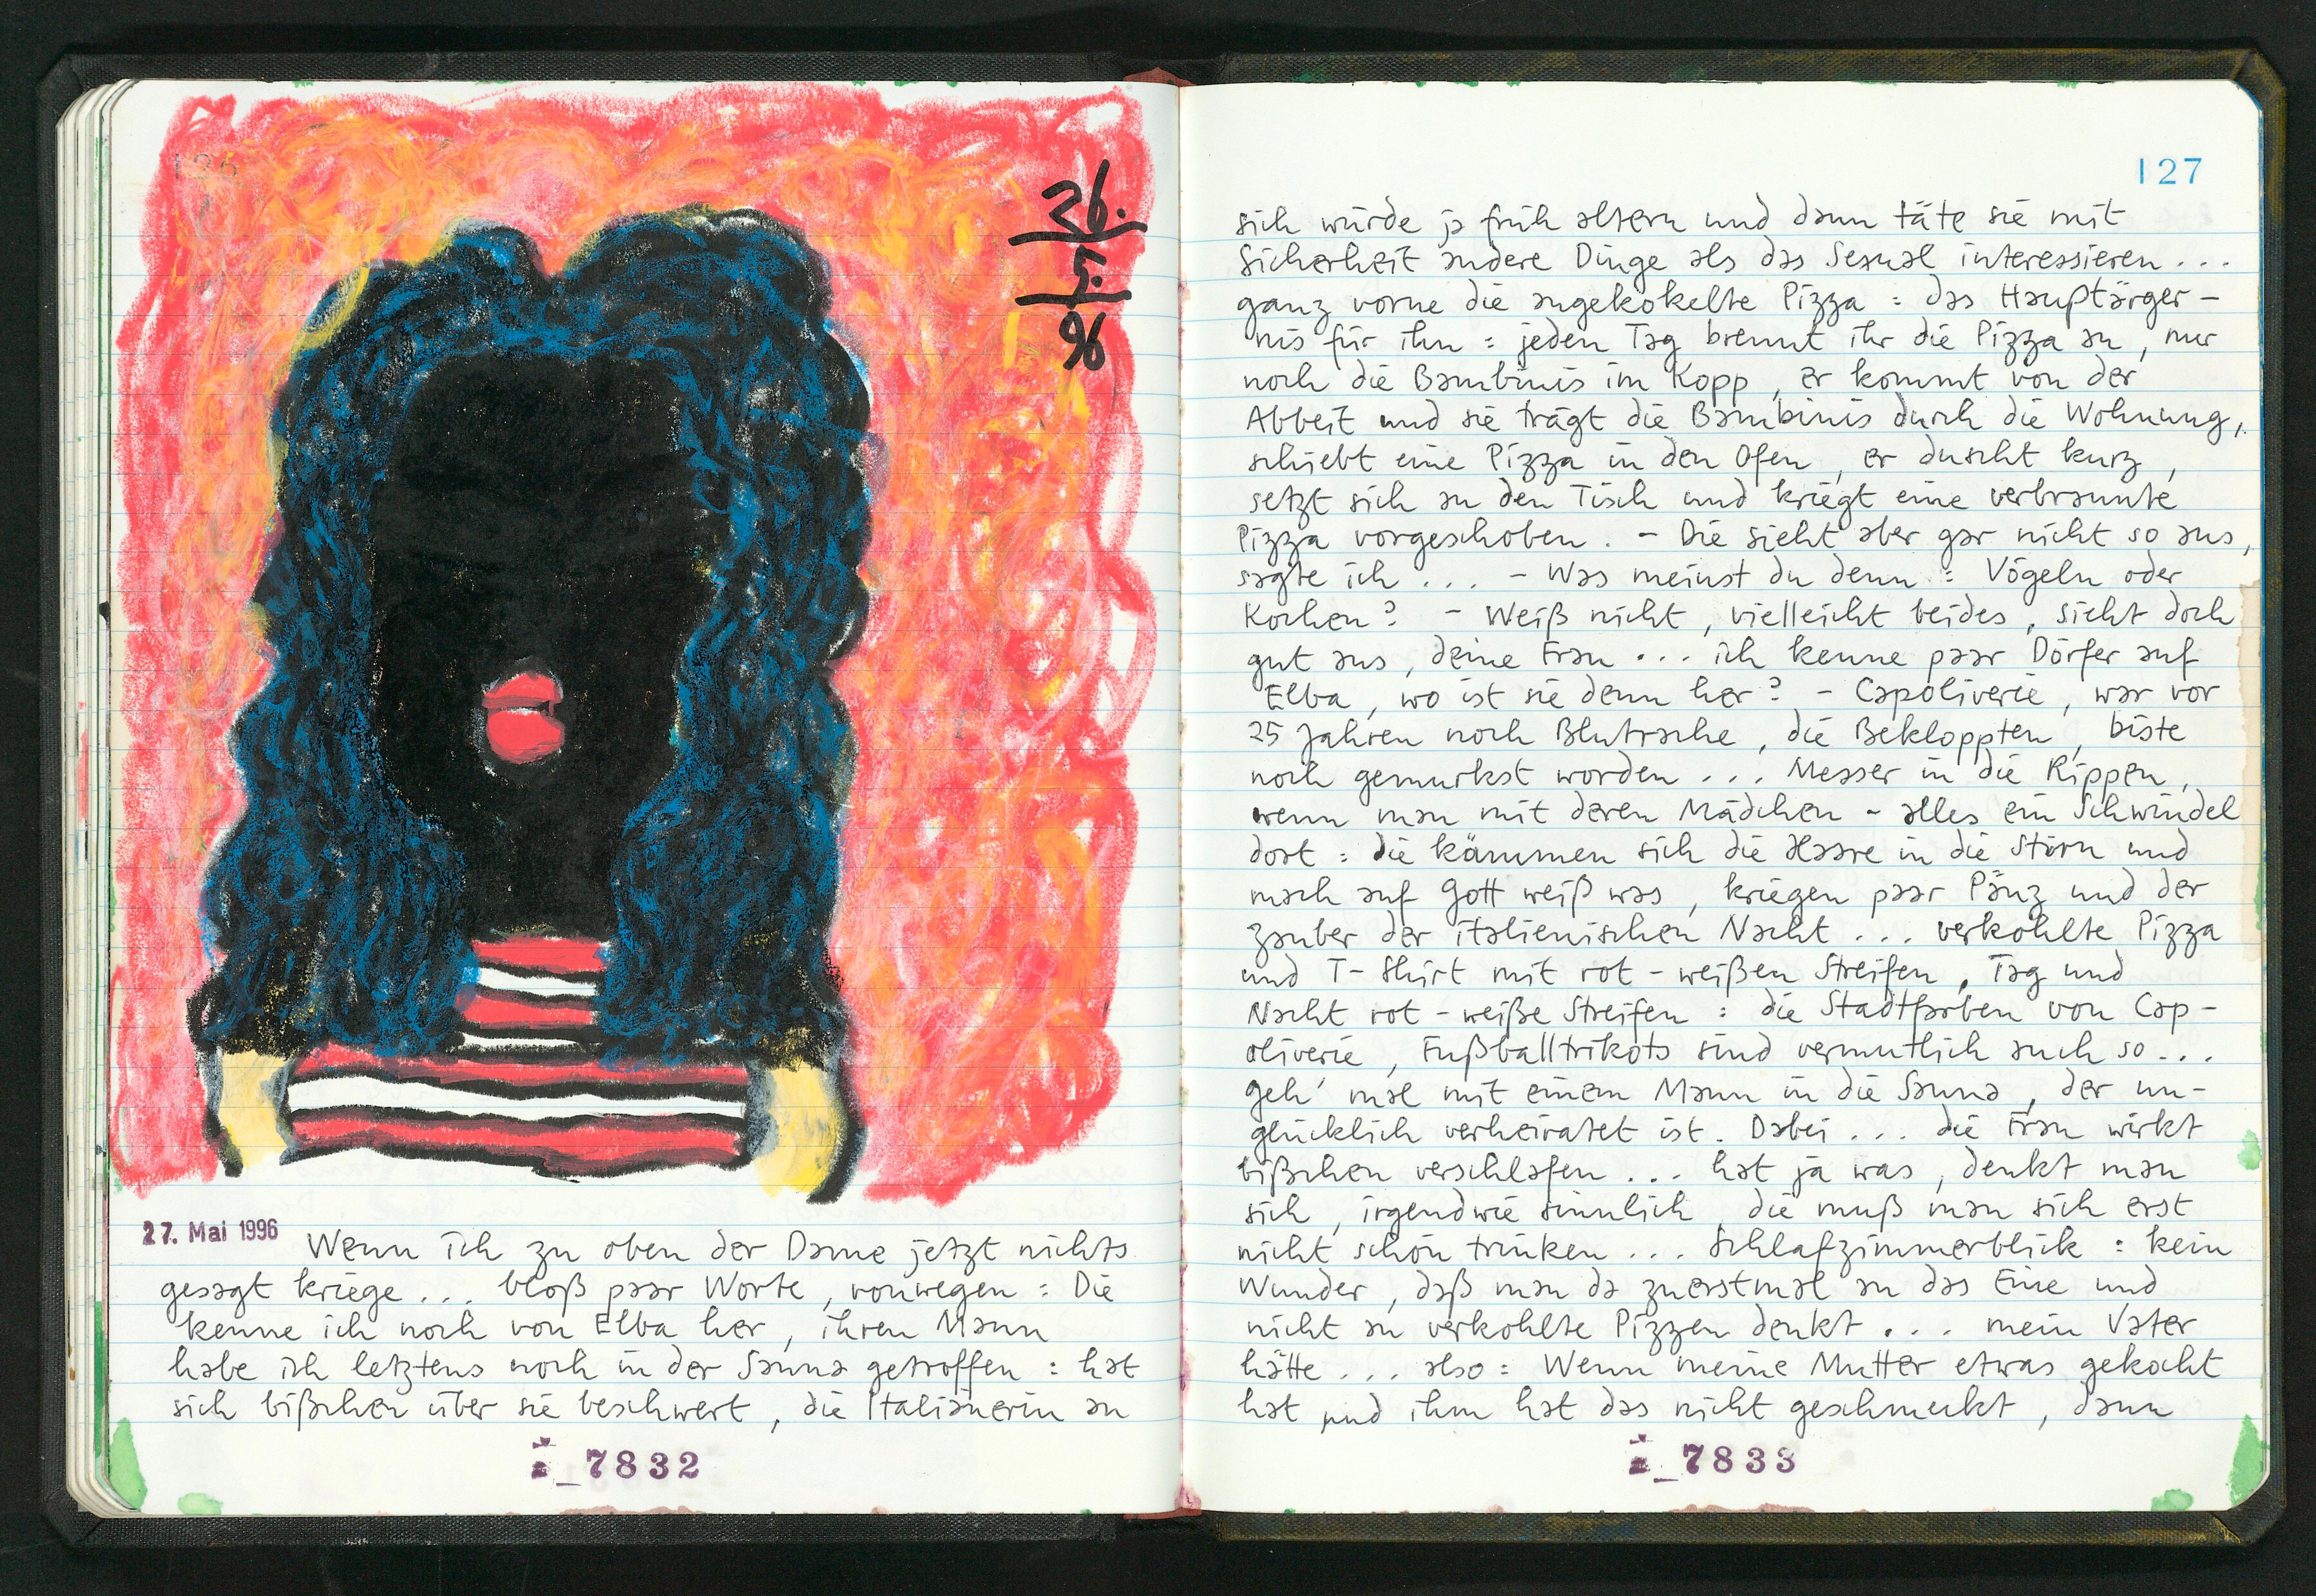 126
26.
5.
96
27. Mai 1996 Wenn ich zu oben der Dame jetzt nichts
gesagt kriege... bloß paar Worte, vonwegen: Die
kenne ich noch von Elba her, ihren Mann
habe ich letztens noch in der Sauna getroffen: hat
sich bißchen über sie beschwert, die Italianerin an
7832
127
sich würde ja früh altern und dann täte sie mit
Sicherheit andere Dinge als das Sexual interessieren...
ganz vorne die angekokelte Pizza: das Hauptärger-
nis für ihn: jeden Tag brennt ihr die Pizza an, nur
noch die Bambinis im Kopp, er kommt von der
Abbeit und sie trägt die Bambinis durch die Wohnung,
schiebt eine Pizza in den Ofen, er duscht kurz,
setzt sich an den Tisch und kriegt eine verbrannte
Pizza vorgeschoben. - Die sieht aber gar nicht so aus,
sagte ich... - Was meinst du denn: Vögeln oder
Kochen? - Weiß nicht, vielleicht beides, sieht doch
gut aus, deine Frau... ich kenne paar Dörfer auf
Elba, wo ist sie denn her? - Capoliverie, war vor
25 Jahren noch Blutrache, die Bekloppten, biste
noch gemurkst worden... Messer in die Rippen,
wenn man mit deren Mädchen - alles ein Schwindel
dort: die kämmen sich die Haare in die Stirn und
mach auf Gott weiß was, kriegen paar Pänz und der
Zauber der italienischen Nacht... verkohlte Pizza
und T-Shirt mit rot-weißen Streifen, Tag und
Nacht rot-weiße Streifen: die Stadtfarben von Cap-
oliverie, Fußballtrikots sind vermutlich auch so...
geh' mal mit einem Mann in die Sauna, der un-
glücklich verheiratet ist. Dabei... die Frau wirkt
bißchen verschlafen... hat ja was, denkt man
sich, irgendwie sinnlich, die muß man sich erst
nicht schön trinken... Schlafzimmerblick: kein
Wunder, daß man da zuerstmal an das Eine und
nicht an verkohlte Pizzen denkt... mein Vater
hätte... also: Wenn meine Mutter etwas gekocht
hat und ihm hat das nicht geschmeckt, dann
7833